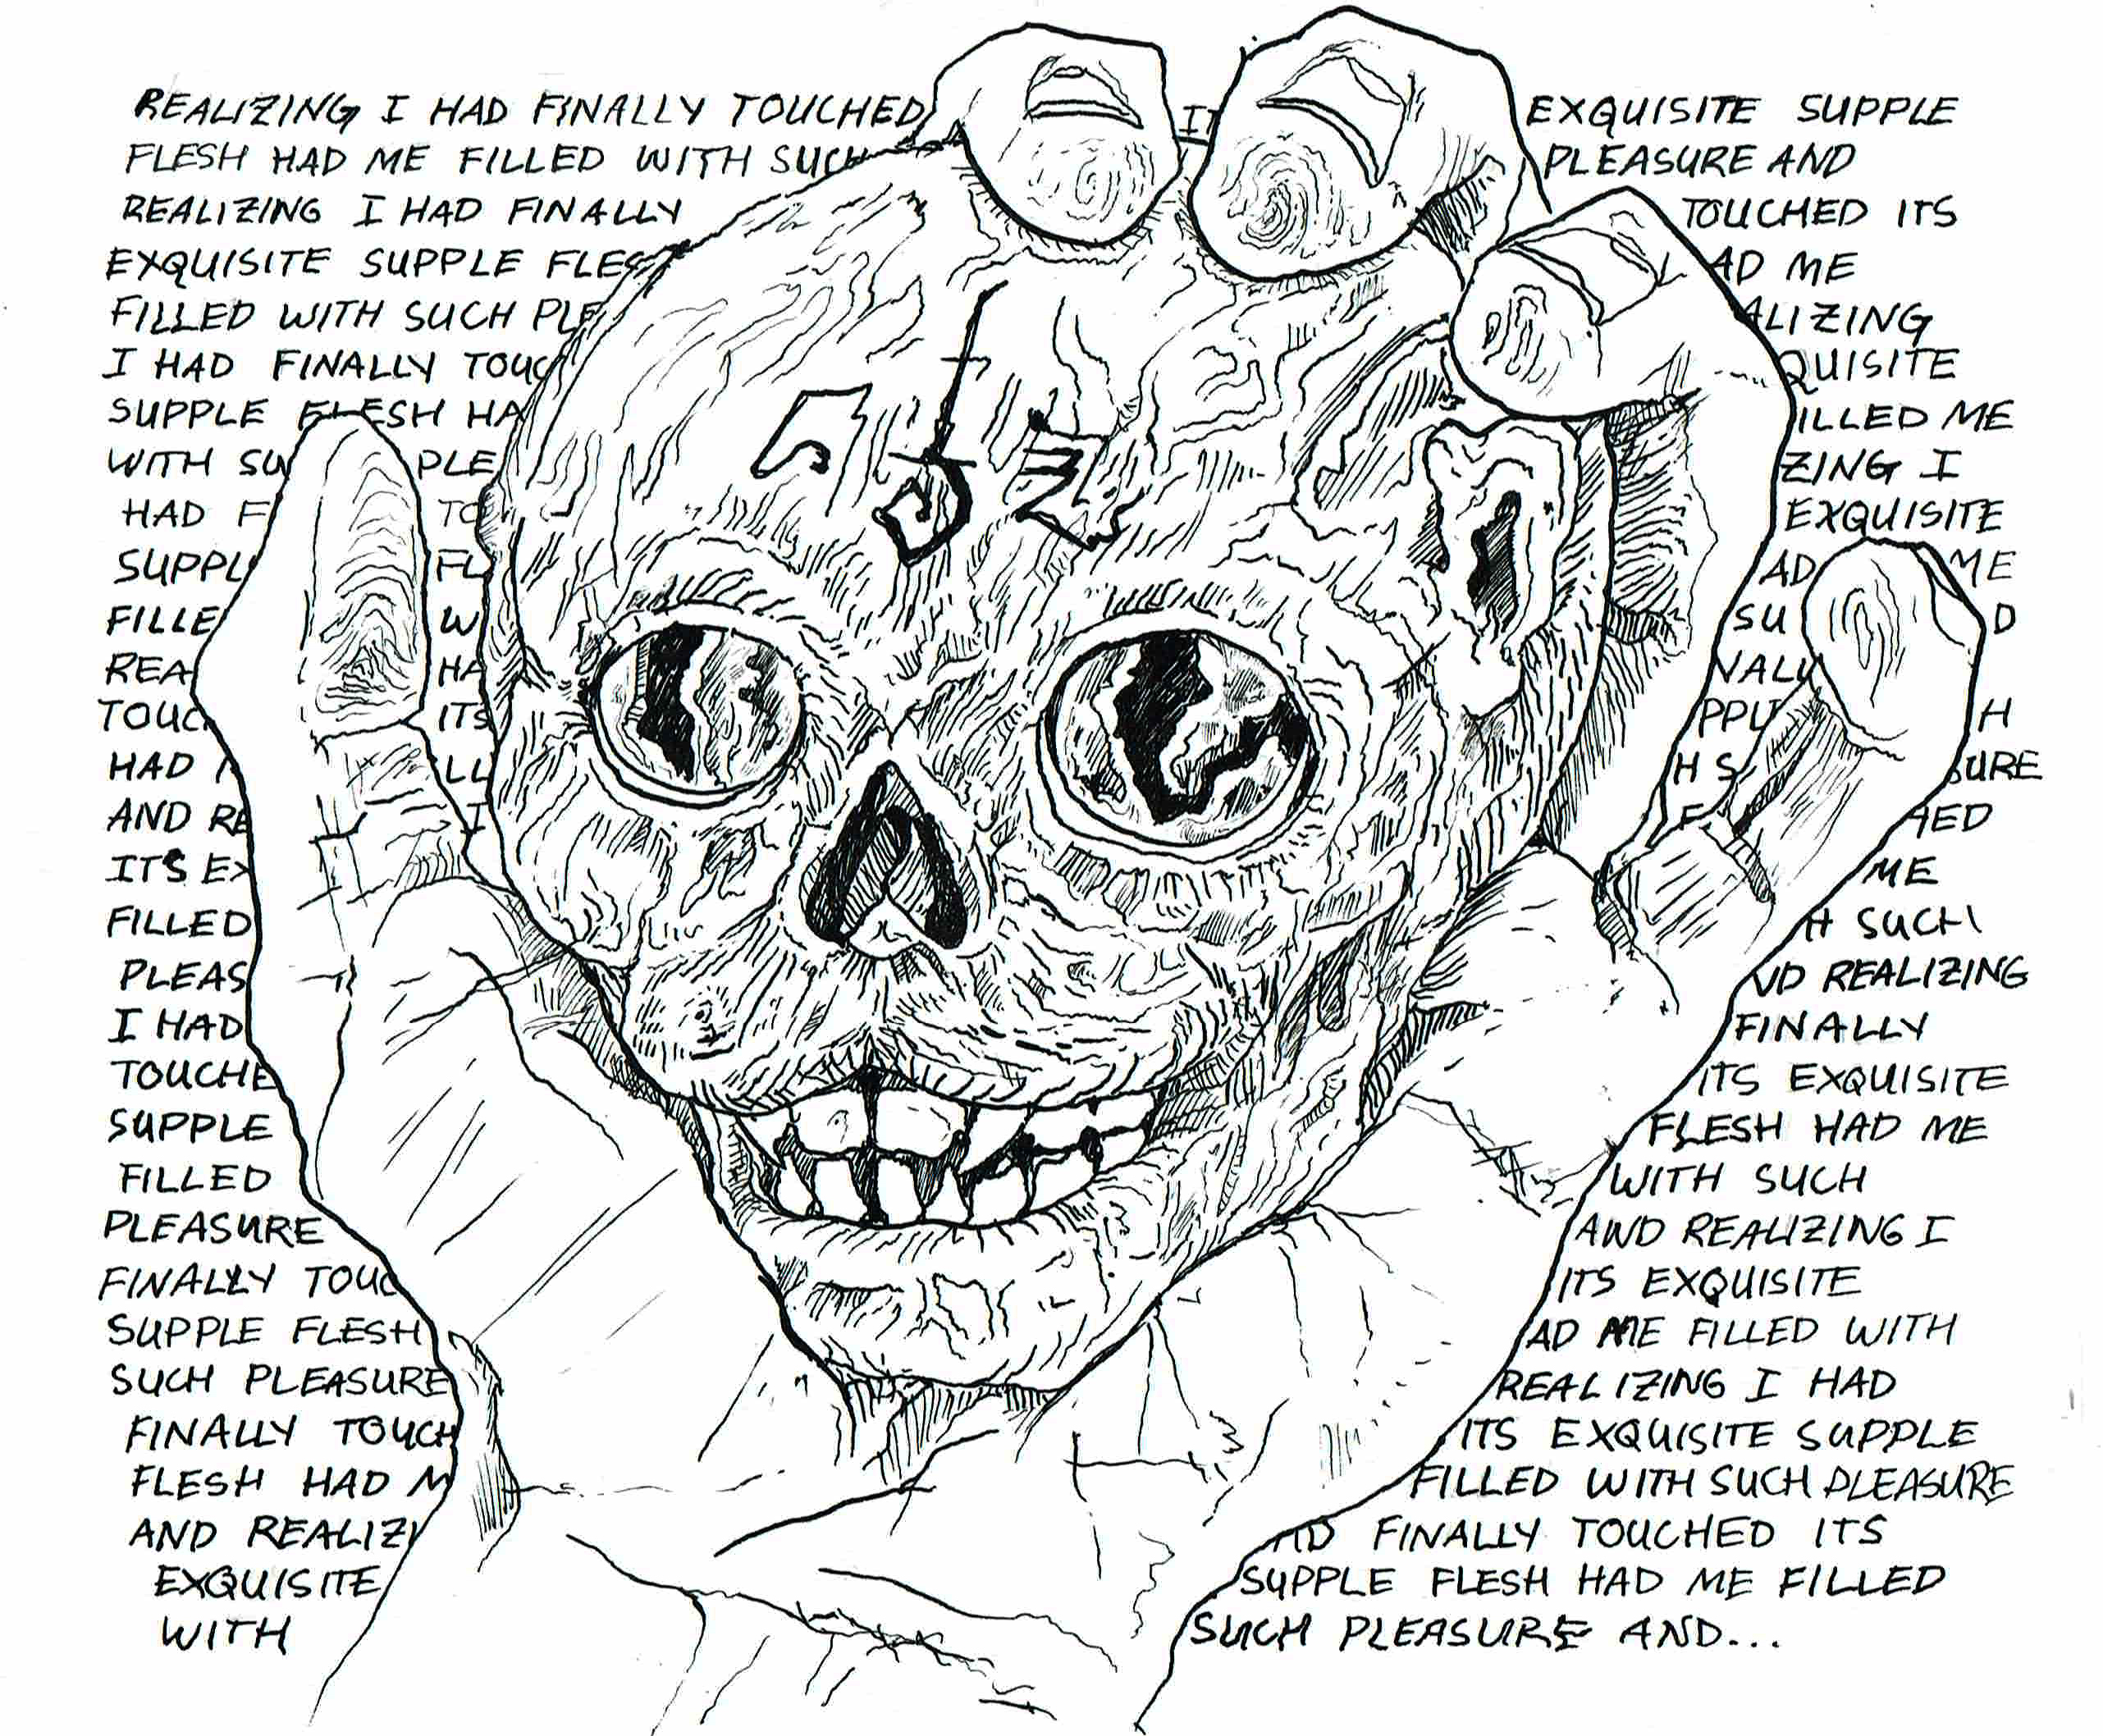 REALIZING I HAD FINALLY TOUCHED IT EXQUISITE SUPPLE
FLESH HAD ME FILLED WITH SUCH PLEASURE AND
REALIZING I HAD FINALLY TOUCHED ITS
EXQUISITE SUPPLE FLES AD ME
FILLED WITH SUCH PLE ALIZING
I HAD FINALLY TOUC QUISITE
SUPPLE FLESH HA ILLED ME
WITH SU PLE ZING I
HAD F TO EXQUISITE
SUPPL FL AD ME
FILLE W SU D
REA HA NALL
TOUC ITS PPL H
HAD LL H S SURE
AND RE I F HED
ITS EX ME
FILLED H SUCH
PLEAS ND REALIZING
I HAD FINALLY
TOUCHE ITS EXQUISITE
SUPPLE FLESH HAD ME
FILLED WITH SUCH
PLEASURE AND REALIZING I
FINALLY TOUC ITS EXQUISITE
SUPPLE FLESH AD ME FILLED WITH
SUCH PLEASURE REALIZING I HAD
FINALLY TOUCH ITS EXQUISITE SUPPLE
FLESH HAD M FILLED WITH SUCH PLEASURE
AND REALIZI AD FINALLY TOUCHED ITS
EXQUISITE SUPPLE FLESH HAD ME FILLED
WITH SUCH PLEASURE AND...